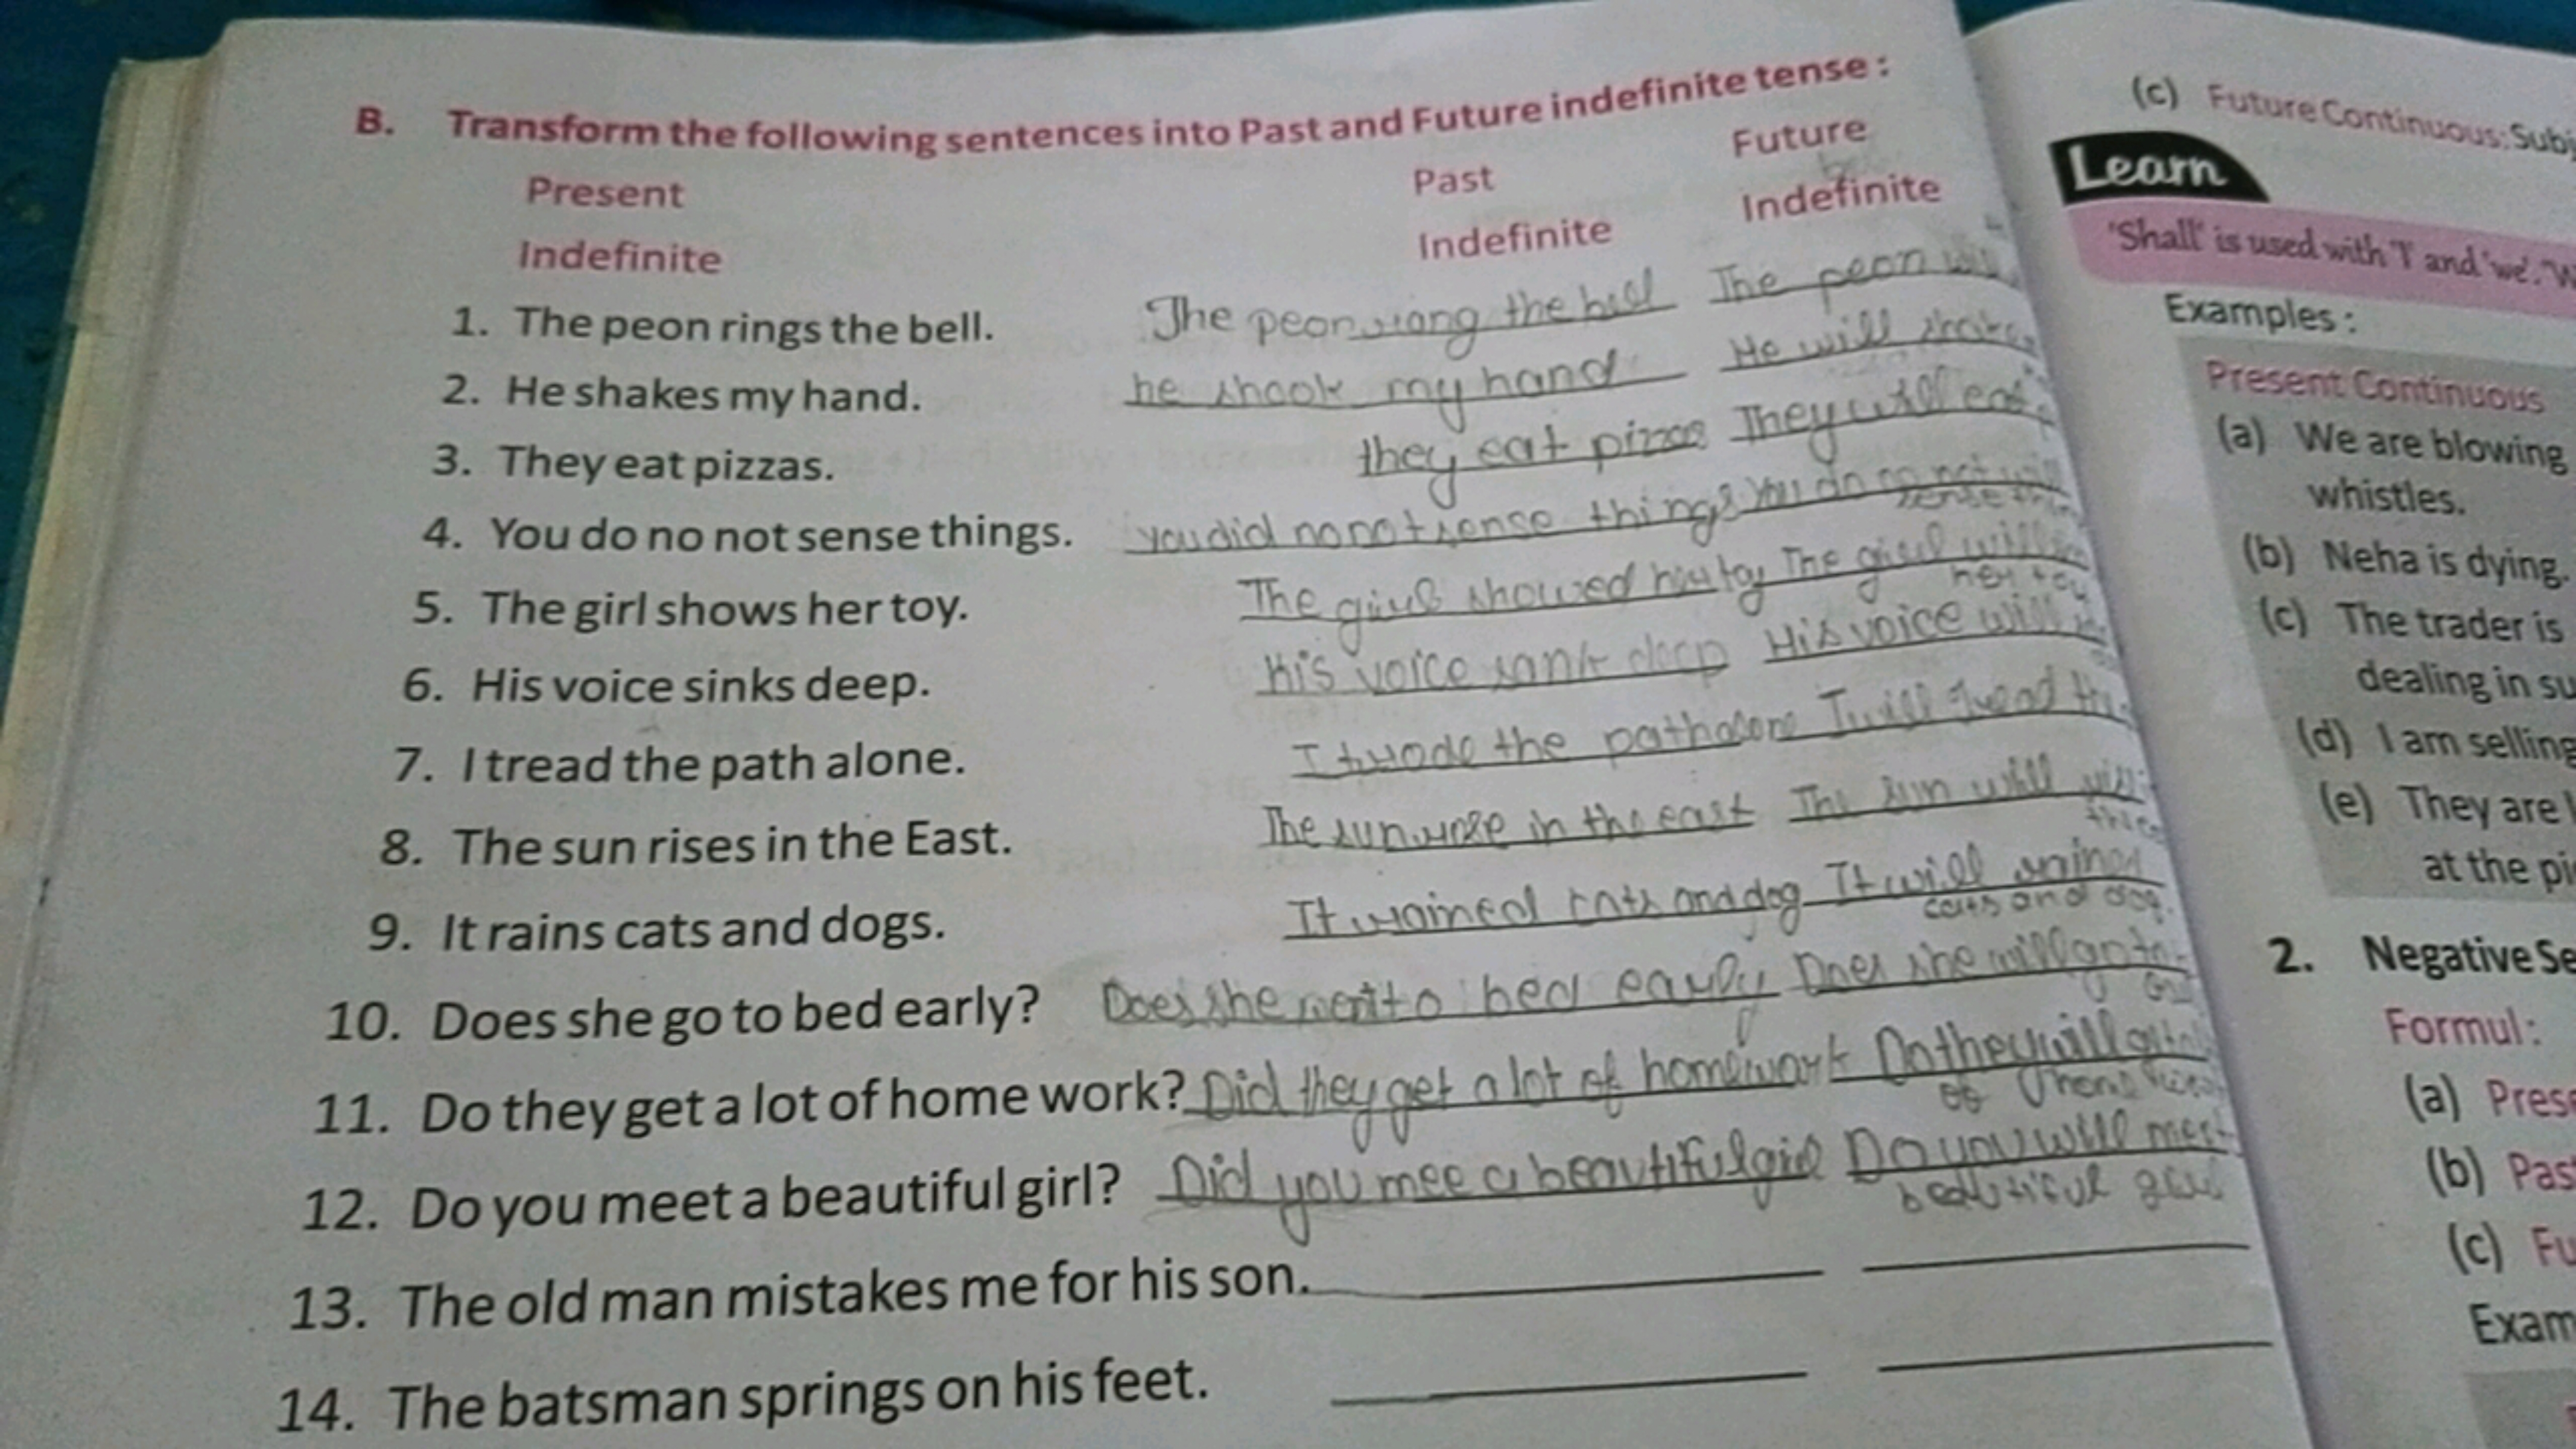 B. Transform the following sentences into Past and Future indefinite tense :
Present Past Future
Indefinite Indefinite Indefinite
1. The peon rings the bell. The peon rang the bell The peon
2. He shakes my hand. he shook my hand He will shake
3. They eat pizzas. they eat pizzas They will eat
4. You do no not sense things. you did no not sense things You do no not will
sense
5. The girl shows her toy. The girl showed her toy The girl will
her toy
6. His voice sinks deep. His voice sank deep His voice will
7. I tread the path alone. I trode the path alone I will tread the
8. The sun rises in the East. The sun rose in the east The sun will
9. It rains cats and dogs. It rained cats and dog It will rained
cats and dog.
10. Does she go to bed early? Does she went to bed early Does she will go to
11. Do they get a lot of home work? Did they get a lot of homework Do they will
of
12. Do you meet a beautiful girl? Did you mee a beautiful girl Do you will meet
beautiful girl
13. The old man mistakes me for his son.
14. The batsman springs on his feet.
(c) Future Continuous: Sub
Learn
'Shall' is used with 'I' and 'we'. 'W
Examples :
Present Continuous
(a) We are blowing
whistles.
(b) Neha is dying.
(c) The trader is
dealing in su
(d) I am selling
(e) They are
at the pi
2. Negative Se
Formul :
(a) Prese
(b) Pas
(c) Fu
Exam